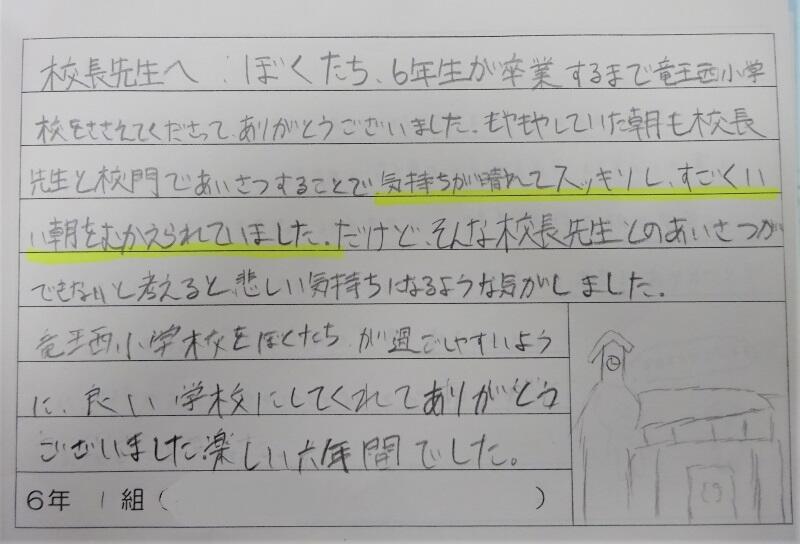 校長先生へ ぼくたち、6年生が卒業するまで竜王西小学
校をささえてくださって、ありがとうございました。もやもやしていた朝も校長
先生と校門であいさつすることで気持ちが晴れてスッキリし、すごくい
い朝をむかえられていました。だけど、そんな校長先生とのあいさつが
できないと考えると、悲しい気持ちになるような気がしました。
竜王西小学校をぼくたちが過ごしやすいよう
に、良い学校にしてくれてありがとう
ございました。楽しい六年間でした。
6年 1組( )